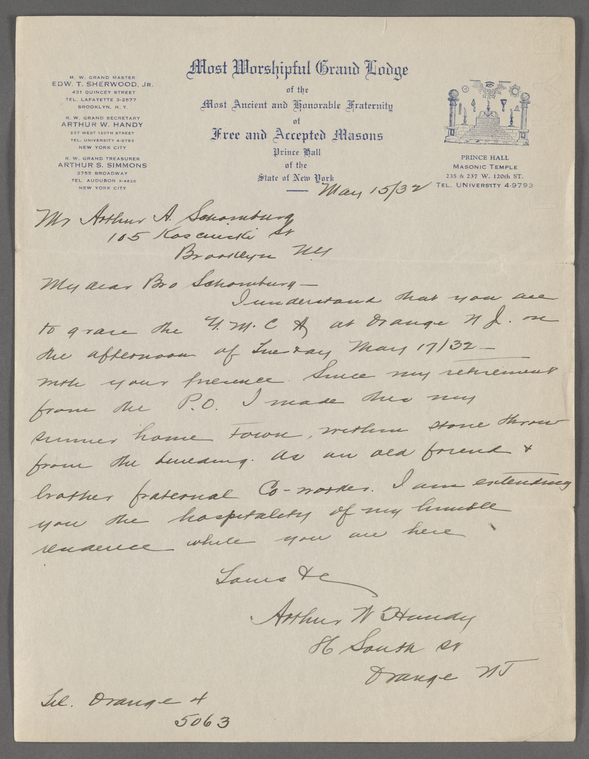 M. W. GRAND MASTER
EDW. T. SHERWOOD, JR.
431 QUINCEY STREET
TEL. LAFAYETTE 3-2577
BROOKLYN, N.Y.
R. W. GRAND SECRETARY
ARTHUR W. HANDY
237 WEST 120TH STREET
TEL. UNIVERSITY 4-9793
NEW YORK CITY
R. W. GRAND TREASURER
ARTHUR S. SIMMONS
BROADWAY
TEL. AUDUBON
NEW YORK CITY
Most Worshipful Grand Lodge
of the
Most Ancient and Honorable Fraternity
of
Free and Accepted Masons
Prince Hall
of the
State of New York
PRINCE HALL
MASONIC TEMPLE
235 & 237 W. 120th ST.
TEL. UNIVERSITY 4-9793
May 15/32
Mr Arthur A. Schomburg
105 Kosciuski St
Brooklyn NY
My dear Bro Schomburg—
I understand that you are
to grace the Y. M. C A at Orange N J. on
the afternoon of Tuesday May 17/32—
with your presence. Since my retirement
from the P.O. I made this my
summer home town, within stone throw
from the building. As an old friend &
brother fraternal Co-worker. I am extending
you the hospitality of my humble
residence while you are here
Yours &c
Arthur W Handy
86 South St
Orange NJ
Tel. Orange 4
5063